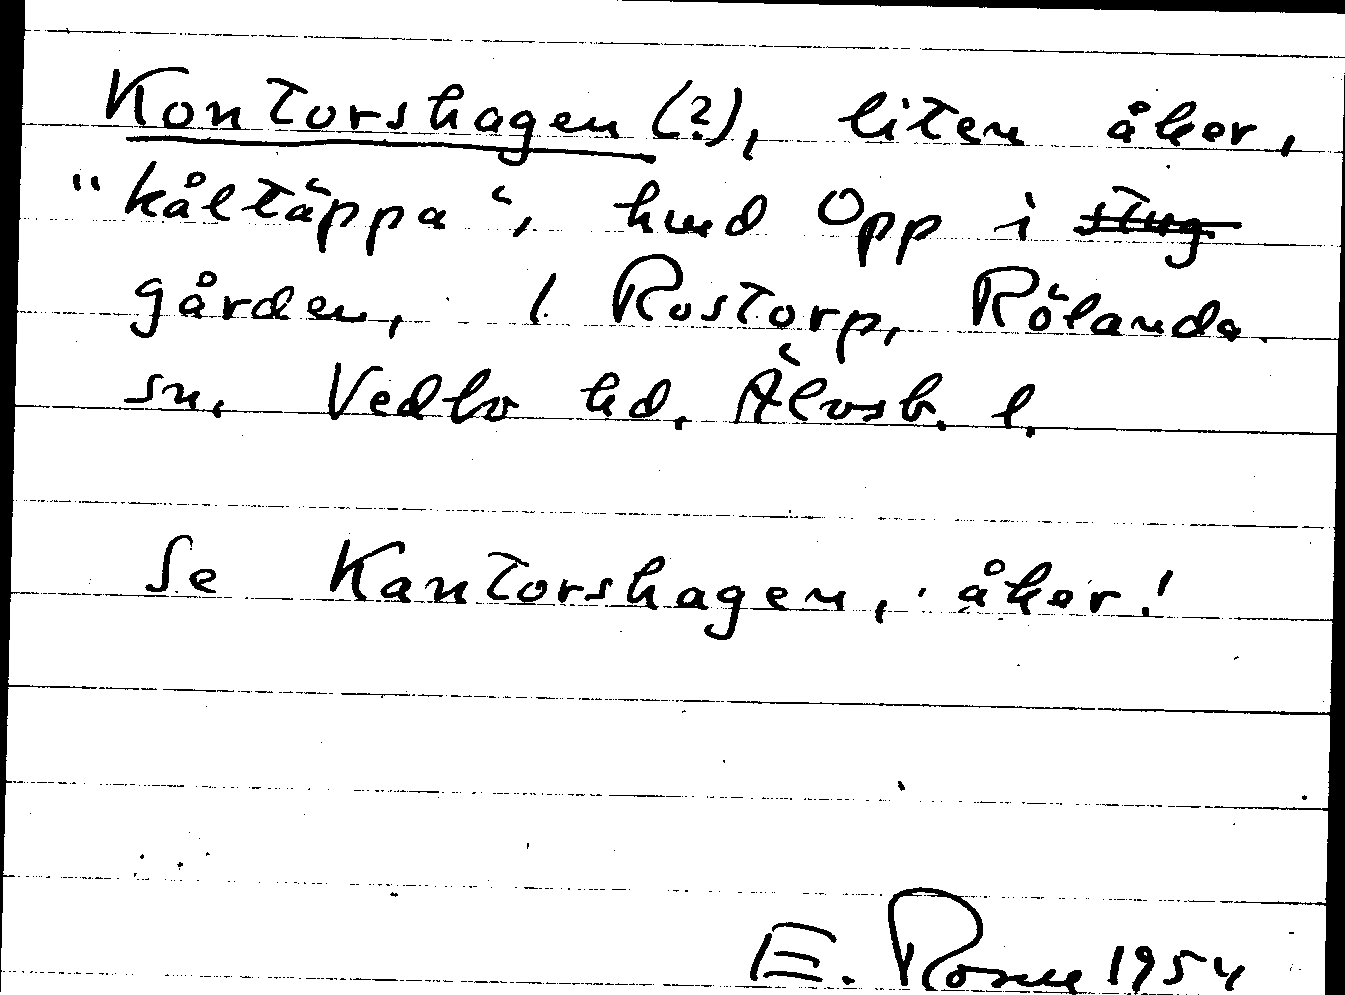 Kontorshagen (?), liten åker,
"kåltäppa", hmd Opp i stug
gården, 1 Rostorp, Rölanda
sn. Vedbo hd. Älvsb. l.
Se Kantorshagen, åker!
E. Rosme 1954